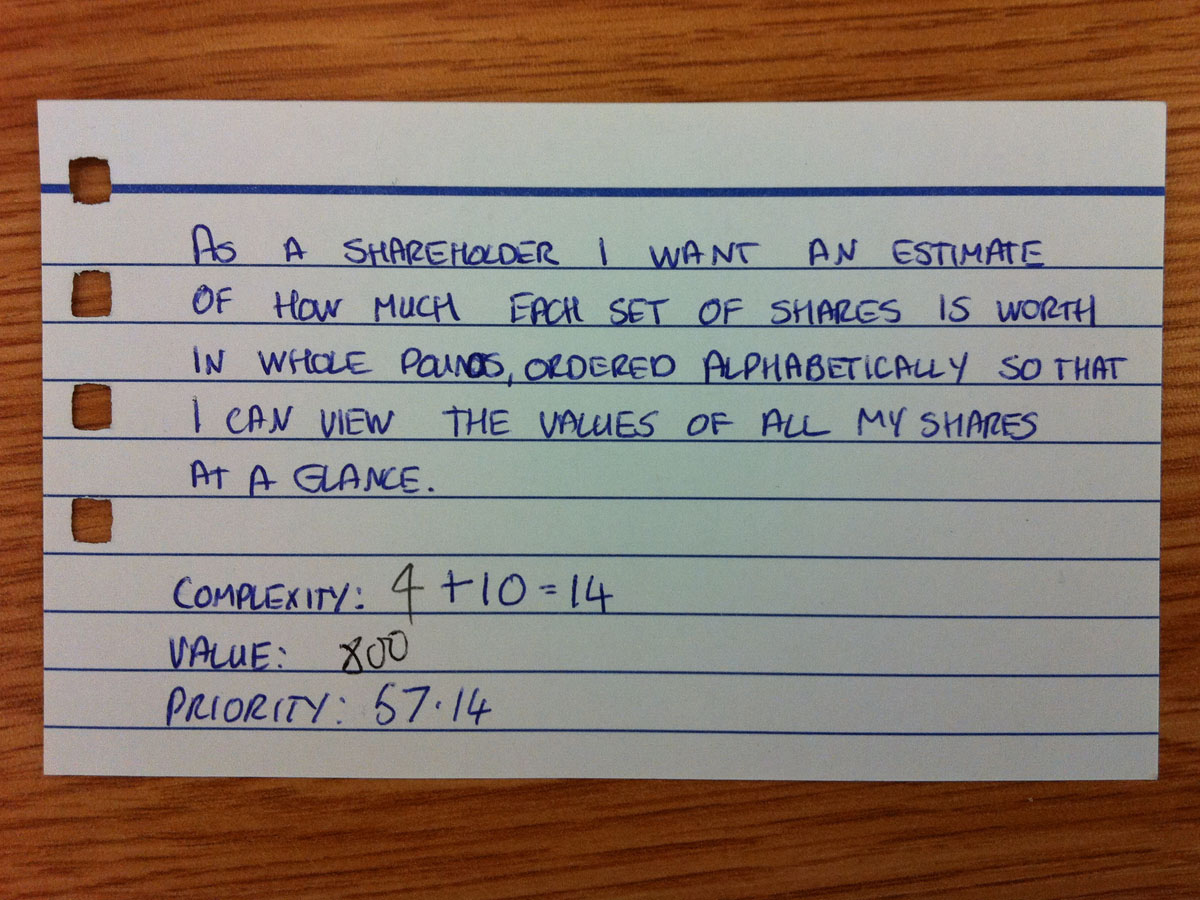 As A SHAREHOLDER I WANT AN ESTIMATE
OF HOW MUCH EACH SET OF SHARES IS WORTH
IN WHOLE POUNDS, ORDERED ALPHABETICALLY SO THAT
I CAN VIEW THE VALUES OF ALL MY SHARES
AT A GLANCE.
COMPLEXITY: 4 + 10 = 14
VALUE: 800
PRIORITY: 57.14